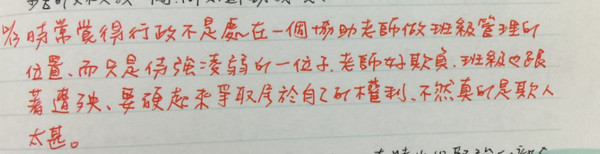 時常覺得行政不是處在一個協助老師做班級管理的
位置、而只是恃強凌弱的一位子、老師好欺負、班級也跟
著遭殃、要硬起來爭取屬於自己的權利、不然真的是欺人
太甚。